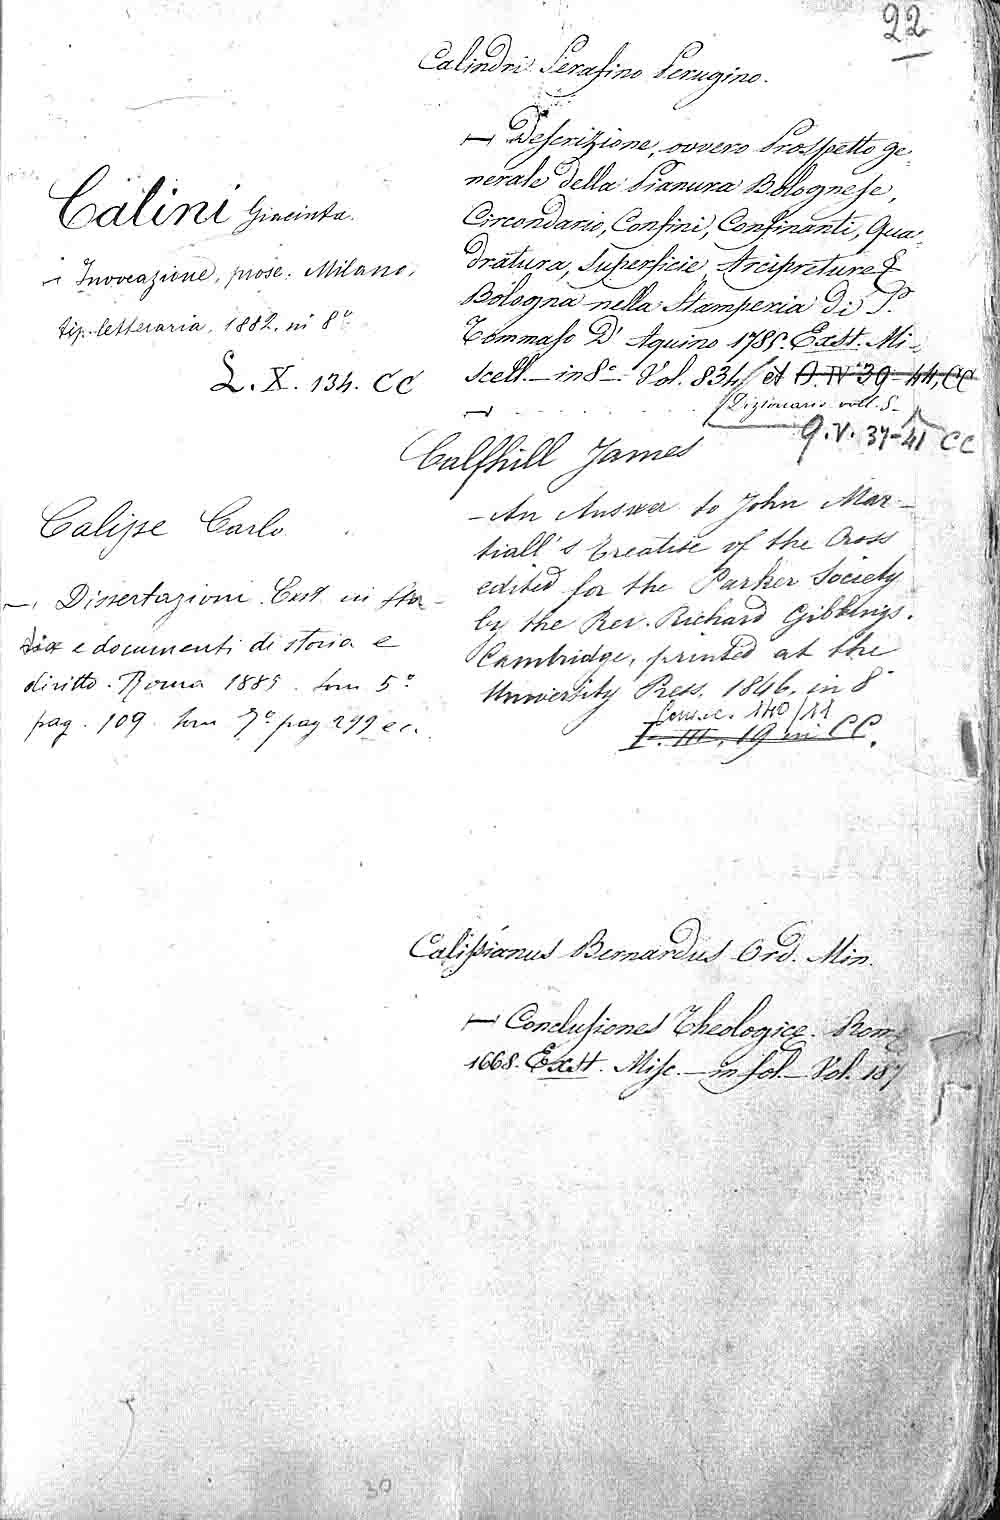 22
Calini Giacinta.
– Invocazione, prose. Milano,
tip. letteraria, 1882, in 8º
L. X. 134. CC
Calisse Carlo
–, Dissertazioni. Exst in
e documenti di storia e
diritto. Roma 1885. tom 5º
pag. 109. tom 7º pag 299 ec.
Calindri Serafino Perugino.
— Descrizione, ovvero Prospetto ge-
nerale della Pianura Bolognese,
Circondario, Confini, Confinanti, Qua-
dratura, Superficie, Arcipreture &
Bologna nella Stamperia di S.
Tommaso D'Aquino 1785. Exst. Mi-
scell. — in 8º — Vol. 834/ et O. IV. 39-44, CC
Dizionario voll. 5.
Q. V. 37-41 CC
Calfhill James
— An Answer to John Mar-
tiall's Treatise of the Cross
edited for the Parker Society
by the Rev. Richard Gibbings.
Cambridge, printed at the
University Press. 1846. in 8º
140/11
I. III. 19 in CC.
Calissianus Bernardus Ord. Min.
— Conclusiones Theologicæ. Romæ
1668. Exst. Misc. — in fol. — Vol. 187
30